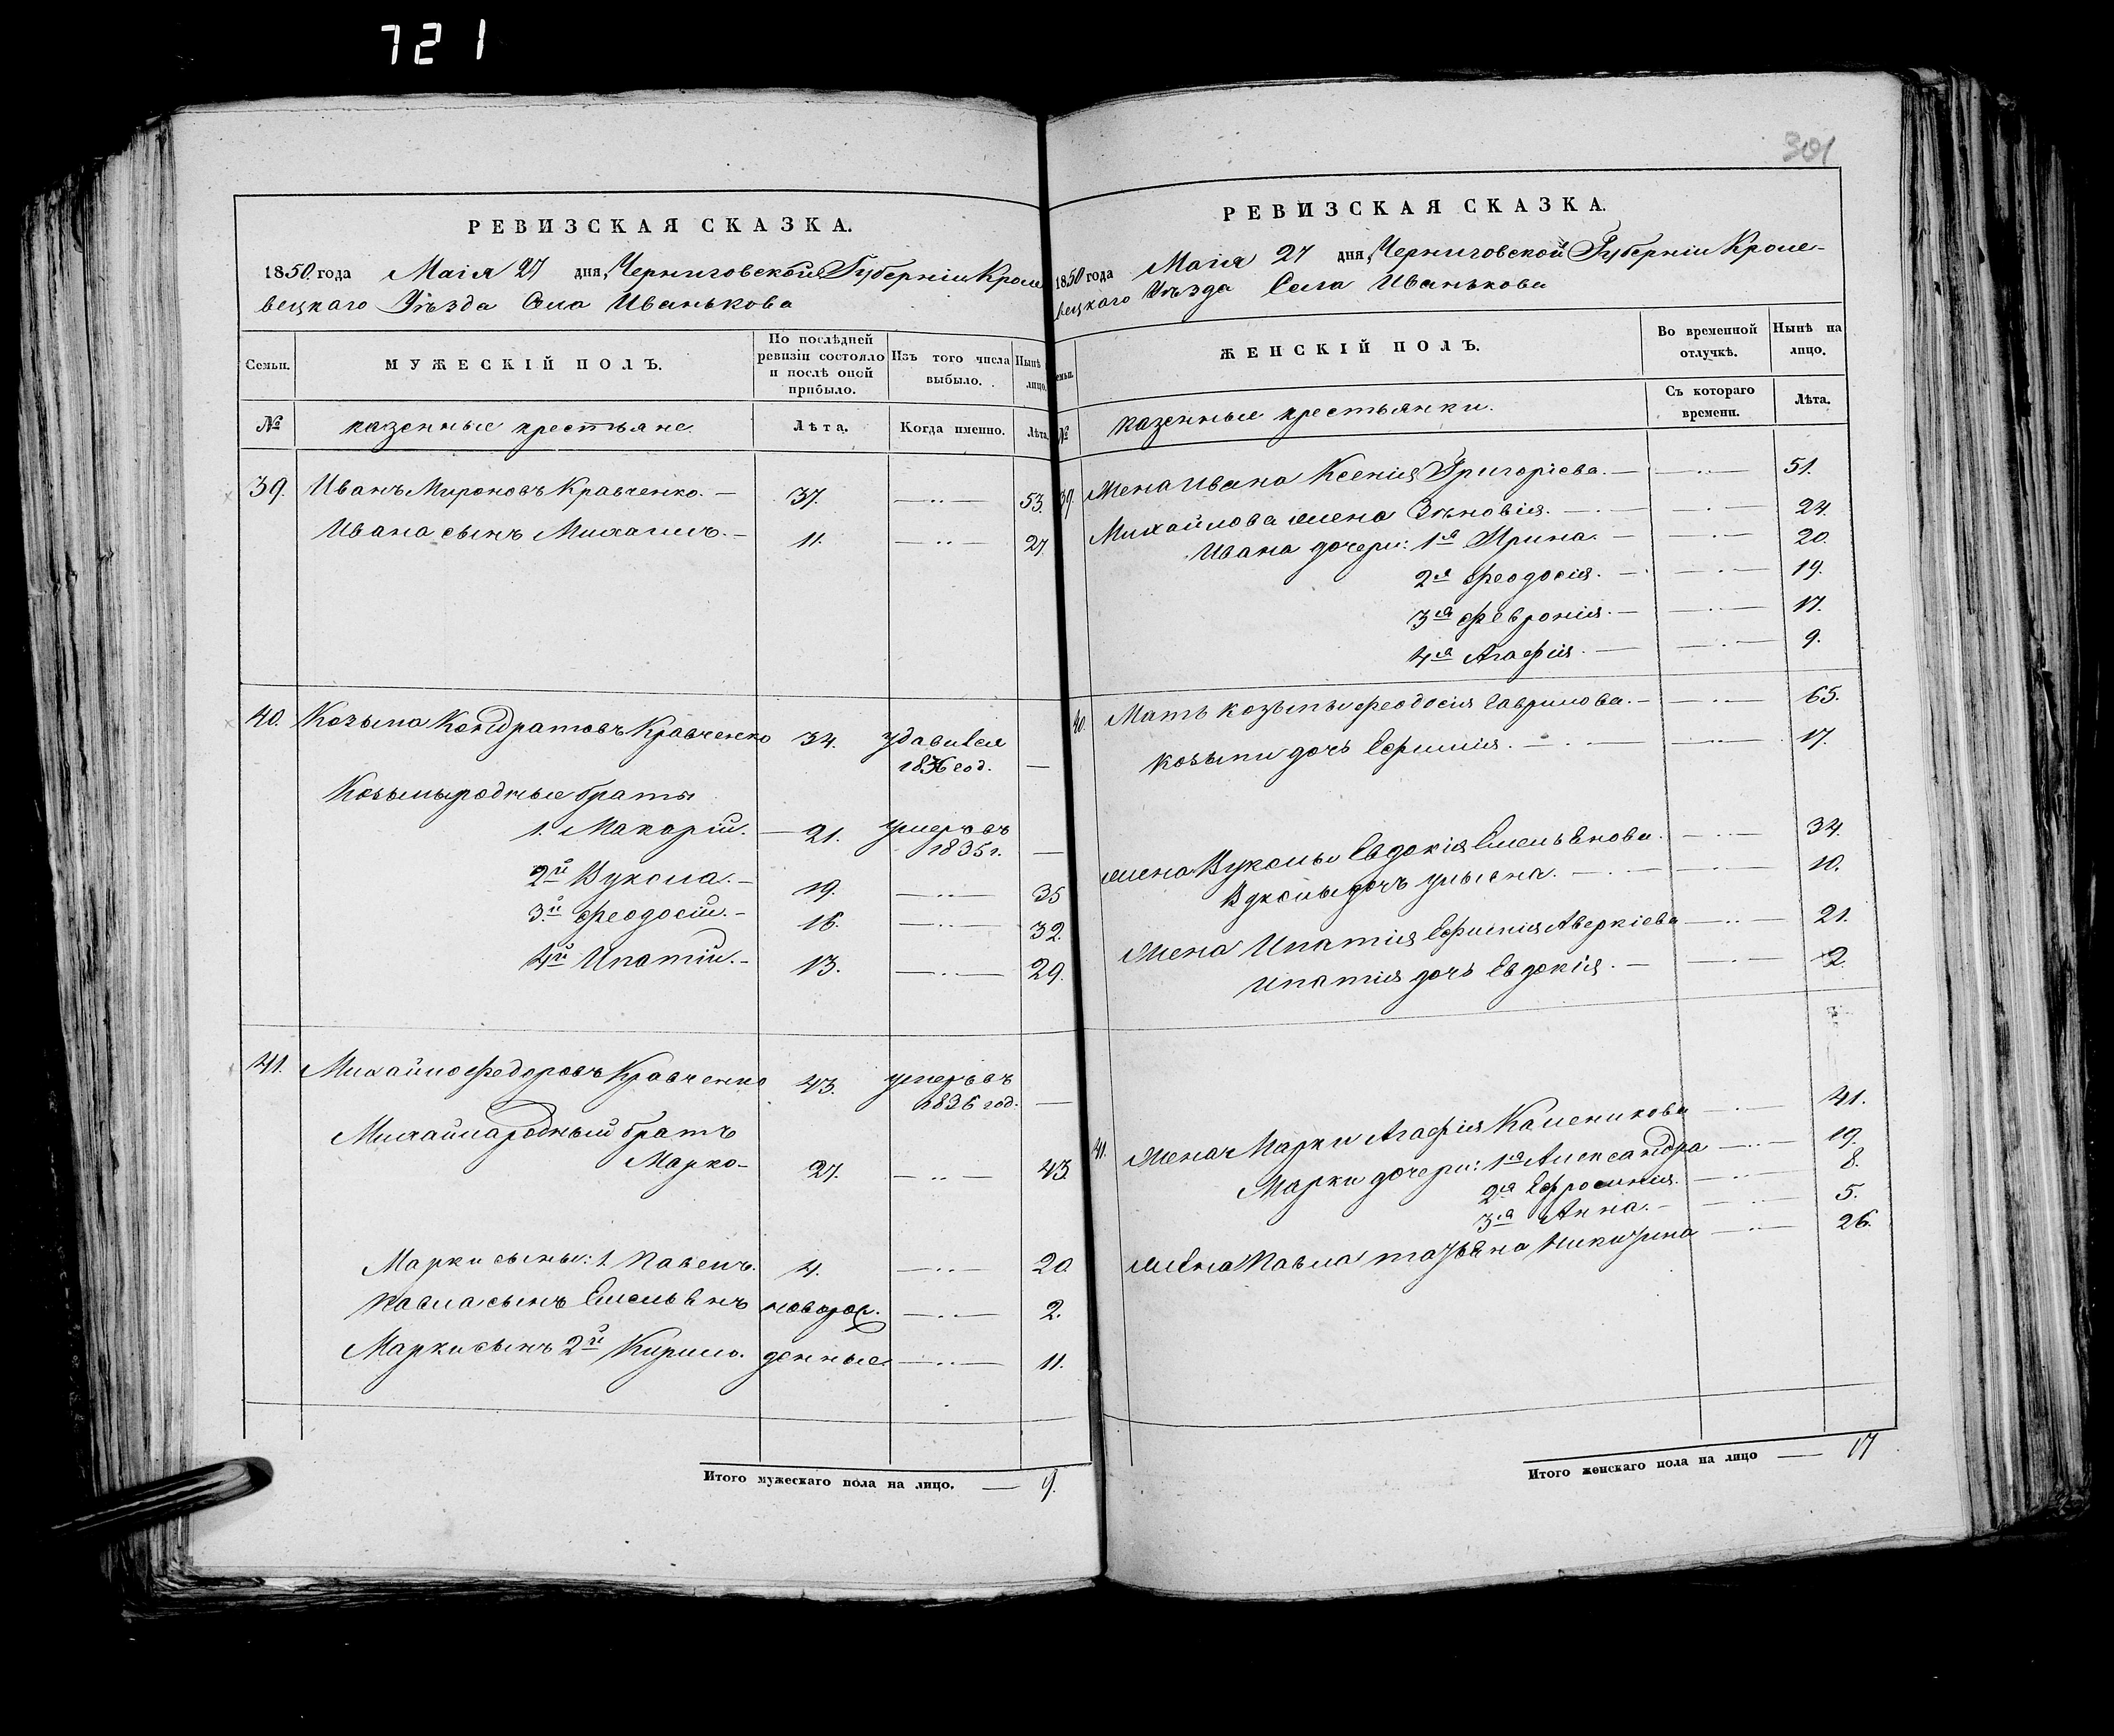 721
301
РЕВИЗСКАЯ СКАЗКА.
1850. года Маія 27 дня, Черниговской Губерніи Кроле-
вецкаго Уѣзда Села Иванькова
Семьи.
МУЖЕСКІЙ ПОЛЪ.
По послѣдней ревизіи состояло и послѣ оной прибыло.
Изъ того числа выбыло.
Нынѣ лицо.
№
казенные крестьяне.
Лѣта.
Когда именно.
Лѣта.
39. Иванъ Мироновъ Кравченко. — 37. — 53.
Ивана сынъ Михаилъ. — 11. — 27
40. Козьма Кондратовъ Кравченко 34. удавился
1836 год. —
Козьмы родные браты
1. Макарій. — 21. умеръ въ
1835 г. —
2й Вукола. — 19. — 35
3.й Феодосій. — 16. — 32.
4й Ипатій. — 13. — 29.
41. Михайло Федоровъ Кравченко 43. умеръ въ
1836 год. —
Михайла родный братъ
Марко — 27. — 43
Марки сыны: 1. Павелъ. 4. — 20
Павла сынъ Емельянъ новорож. — 2.
Марки сынъ 2й Кирило. денные — 11.
Итого мужескаго пола на лицо. — 9.
РЕВИЗСКАЯ СКАЗКА.
1850 года Маія 27 дня, Черниговской Губерніи Кроле-
вецкаго Уѣзда Села Иванькова
Семьи.
ЖЕНСКІЙ ПОЛЪ.
Во временной отлучкѣ.
Нынѣ на лицо.
№
казенные крестьянки.
Съ котораго времени.
Лѣта.
39. Жена Ивана Ксенія Григоріева. — 51.
Михайлова жена Зѣновія. — 24.
Ивана дочери: 1я Ирина. — 20.
2я Феодосія. — 19.
3я Февронія. — 17.
4я Агафія. — 9.
40. Мать Козьмы Феодосія Гаврилова. — 65.
Козьмы дочь Ефимія. — 17.
жена Вуколы Евдокія Емельянова. — 34.
Вуколы дочь Ульяна. — 10.
Жена Ипатія Ефимія Аверкіева — 21.
Ипатія дочь Евдокія. — 2.
41. Жена Марки Агафія — 41.
Марки дочери: 1я Александра — 19.
2я Ефросинія. — 8.
3я Анна. — 5.
жена Павла Татьяна Никитина — 26.
Итого женскаго пола на лицо — 17